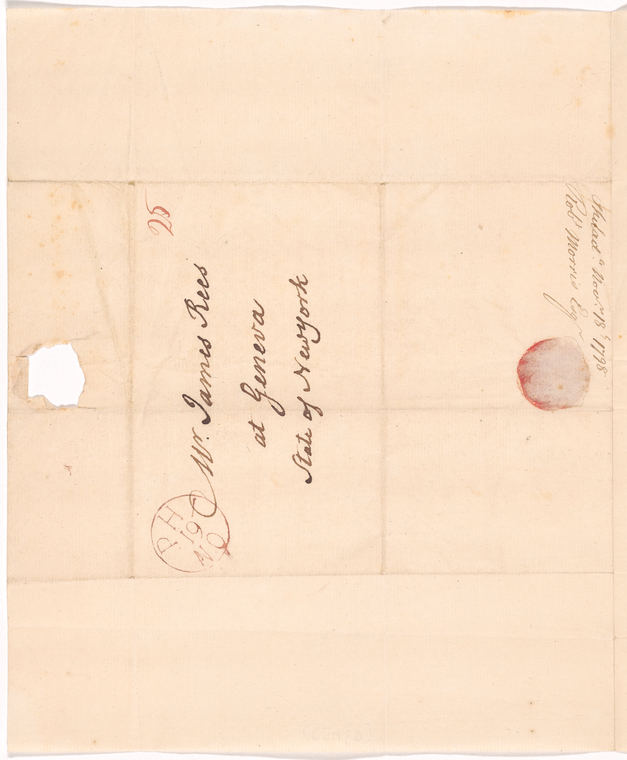 25
Mr. James Rees
at Geneva
State of Newyork
PH
19
NO
Philad.a Nov.r 18th 1798
Robt Morris Esqr